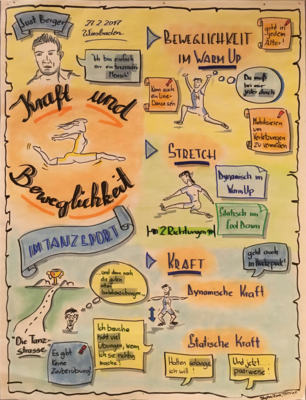 Just Berger
11.2.2017
Wiesbaden
Ich bin einfach
ein tanzender
Mensch!
Kraft und
Beweglichkeit
IM TANZSPORT
BEWEGLICHKEIT
IM WARM UP
geht in
jedem
Alter!
Kann auch ein
Line-
Dance sein
Mobilisieren
um
Verletzungen
zu vermeiden
STRETCH
Dynamisch im
Warm Up
Statisch im
Cool Down
2 Richtungen
KRAFT
geht auch
im
Dynamische Kraft
Statische Kraft
"Die Tanz-
strasse
Es gibt
keine
Zauberübung!
... und dann noch
die guten
alten
Ich brauche
nicht viel
Übungen, wenn
ich sie richtig
mache!
Halten solange
ich will!
Und jetzt
paarweise!